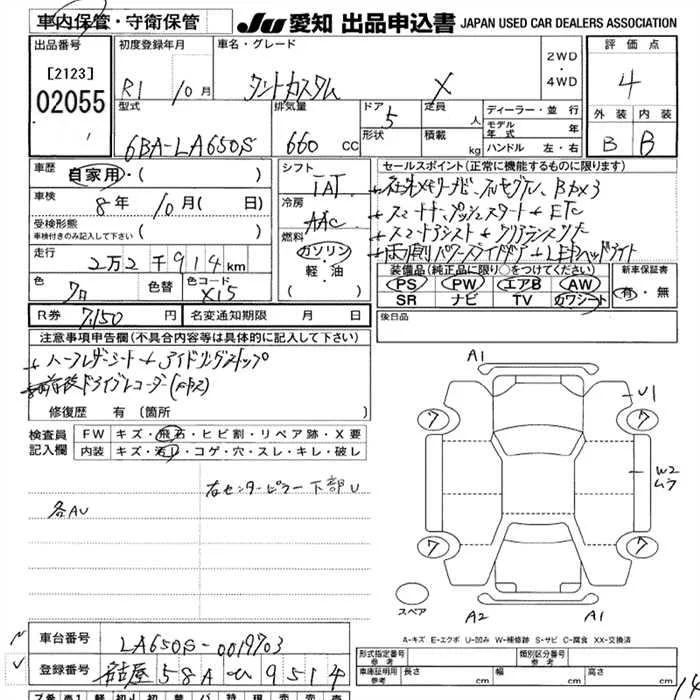 車内保管・守衛保管
JU 愛知 出品申込書 JAPAN USED CAR DEALERS ASSOCIATION
出品番号
[2123]
02055
初度登録年月
R1 10月
車名・グレード
タントカスタム X
2WD
・
4WD
評価点
4
外装 内装
B B
型式
6BA-LA650S
排気量
660 cc
ドア
5
形状
定員
人
積載
kg
ディーラー・並行
モデル年式 年
ハンドル 左・右
車歴
自家用・( )
車検
8年 10月( 日)
受検形態
車検付きのみ記入して下さい ( )
走行
2万2千914km
色
クロ
色替
色コード
X15
シフト
IAT
冷房
AAC
燃料
ガソリン
・
軽・油
( )
セールスポイント(正常に機能するものに限ります)
+社外メモリーナビ、フルセグTV、Bカメラ
+スマートキー、プッシュスタート+ETC
+スマートアシスト+クリアランスソナー
+両側パワースライドドア+LEDヘッドライト
装備品(純正品に限り○をつけてください)
PS PW エアB AW
SR ナビ TV カワシート
新車保証書
有・無
R券 7,150円
名変通知期限 月 日
後日品
注意事項申告欄(不具合内容等は具体的に記入して下さい)
+ハーフレザーシート+アイドリングストップ
+前後ドライブレコーダー
修復歴 有 〔箇所 〕
検査員
記入欄
FW キズ・飛石・ヒビ割・リペア跡・X要
内装 キズ・汚れ・コゲ・穴・スレ・キレ・破レ
右センターピラー下部U
各AU
A1
U1
ワ
ワ
W2
ムラ
ワ
ワ
スペア
A2
A1
A-キズ E-エクボ U-凹み W-補修跡 S-サビ C-腐食 XX-交換済
車台番号
LA650S-0019703
登録番号
名古屋 58A 9514
形式指定番号
参考
類別区分番号
参考
車庫証明用
参考
長さ cm 幅 cm 高さ cm